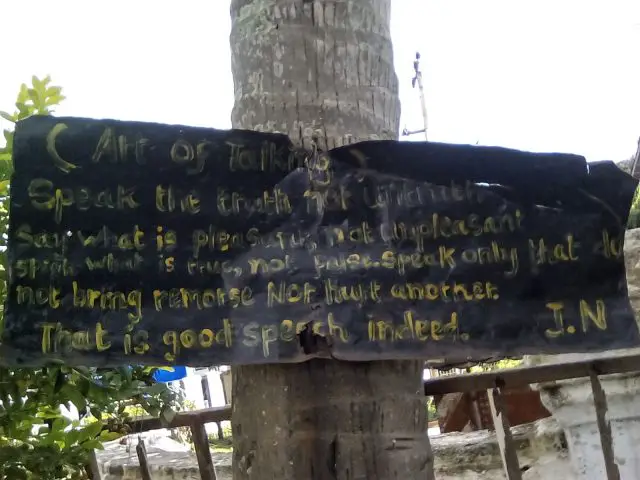 ( Art of Talking )
Speak the truth not untruth
say what is pleasant, not unpleasant
speak what is true, not false. Speak only that do
not bring remorse Nor hurt another.
That is good speech indeed. J.N